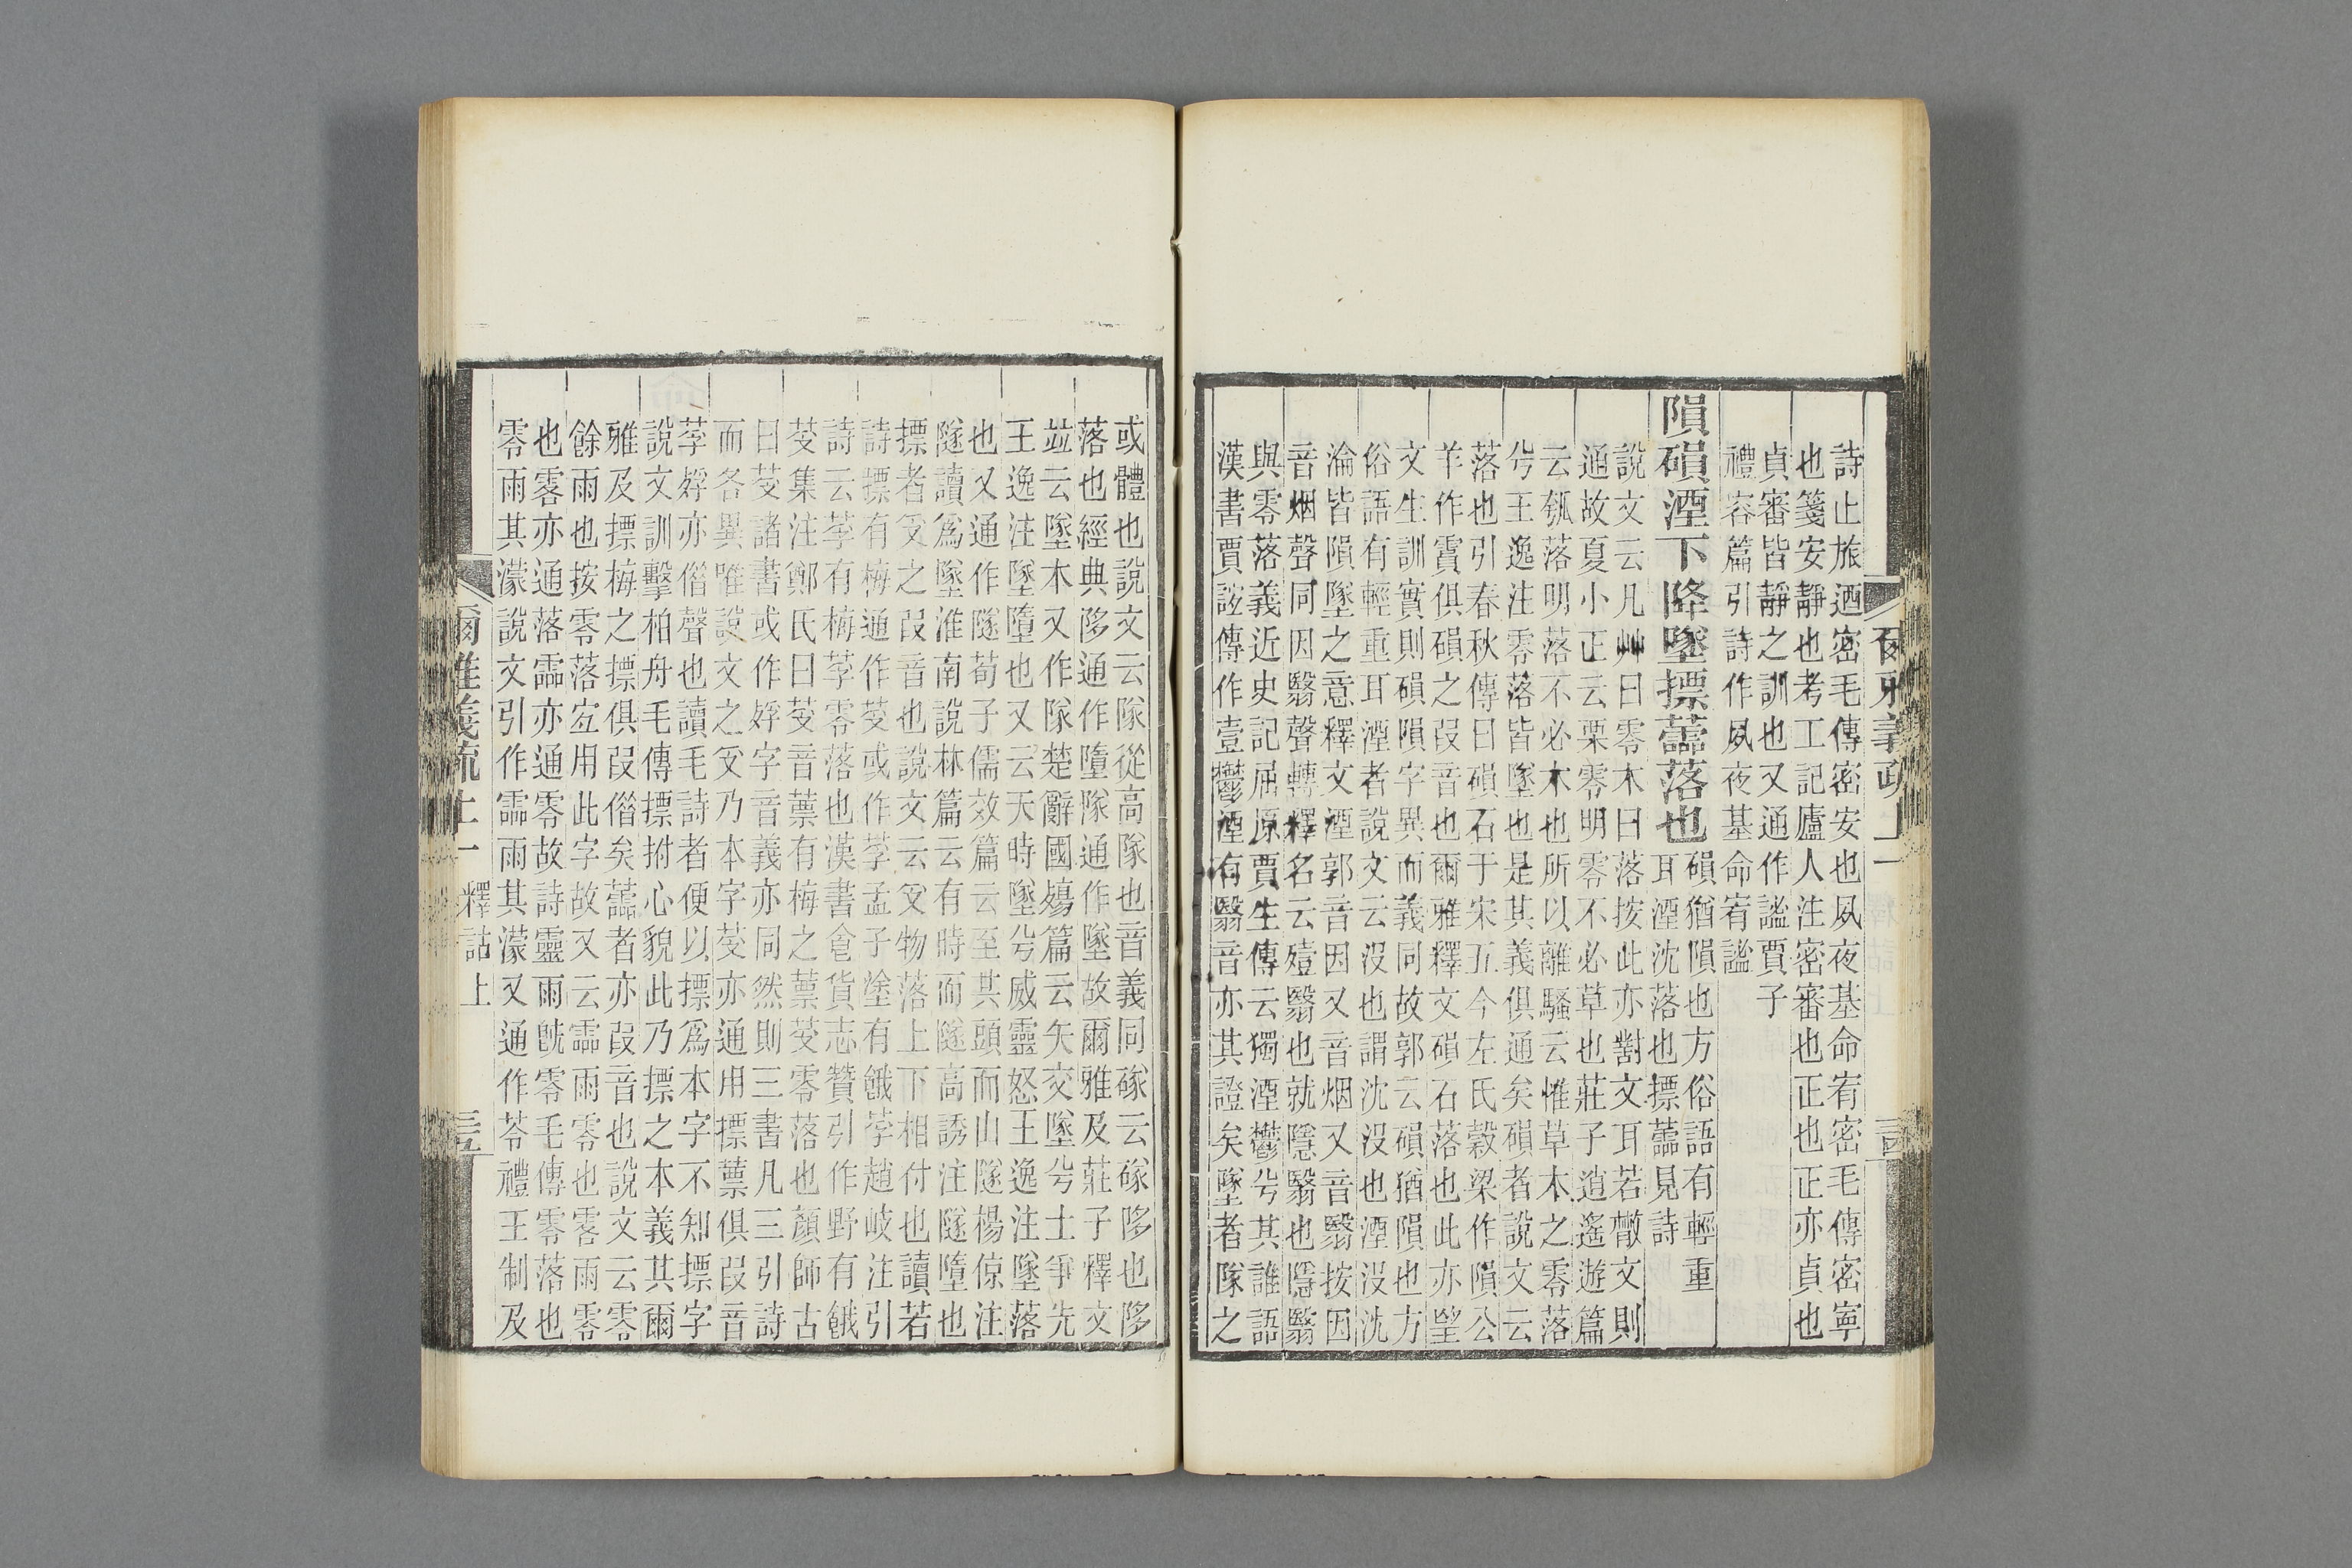 詩止旅迺密毛傳密安也夙夜基命宥密毛傳密寧
也箋安靜也考工記廬人注密審也正也正亦貞也
貞審皆靜之訓也又通作謐賈子
禮容篇引詩作夙夜基命宥謐
隕磒湮下降墜摽蘦落也
磒猶隕也方俗語有輕重
耳湮沈落也摽蘦見詩
說文云凡艸曰零木曰落按此亦對文耳若散文則
通故夏小正云栗零明零不必草也莊子逍遙遊篇
云瓠落明落不必木也所以離騷云惟草木之零落
兮王逸注零落皆墜也是其義俱通矣磒者說文云
落也引春秋傳曰磒石于宋五今左氏穀梁作隕公
羊作霣俱磒之叚音也爾雅釋文磒石落也此亦望
文生訓實則磒隕字異而義同故郭云磒猶隕也方
俗語有輕重耳湮者說文云沒也謂沈沒也湮沒沈
淪皆隕墜之意釋文湮郭音因又音烟又音翳按因
音烟聲同因翳聲轉釋名云殪翳也就隱翳也隱翳
與零落義近史記屈原賈生傳云獨湮鬱兮其誰語
漢書賈誼傳作壹鬱湮有翳音亦其證矣墜者隊之
或體也說文云隊從高隊也音義同䃍云䃍陊也陊
落也經典陊通作墮隊通作墜故爾雅及莊子釋文
竝云墜木又作隊楚辭國殤篇云矢交墜兮士爭先
王逸注墜墮也又云天時墜兮威靈怒王逸注墜落
也又通作隧荀子儒效篇云至共頭而山隧楊倞注
隧讀爲墜淮南說林篇云有時而隧高誘注隧墮也
摽者𠬪之叚音也說文云𠬪物落上下相付也讀若
詩摽有梅通作芆或作莩孟子塗有餓莩趙岐注引
詩云莩有梅莩零落也漢書食貨志贊引作野有餓
芆集注鄭氏曰芆音蔈有梅之蔈芆零落也顏師古
曰芆諸書或作殍字音義亦同然則三書凡三引詩
而各異唯說文之𠬪乃本字芆亦通用摽蔈俱叚音
莩殍亦偕聲也讀毛詩者便以摽爲本字不知摽字
說文訓擊柏舟毛傳摽拊心貌此乃摽之本義其爾
雅及摽梅之摽俱叚偕矣蘦者亦叚音也說文云零
餘雨也按零落宐用此字故又云霝雨零也雺雨零
也雺亦通落霝亦通零故詩靈雨旣零毛傳零落也
零雨其濛說文引作霝雨其濛又通作苓禮王制及
爾雅義疏 上一 釋詁上